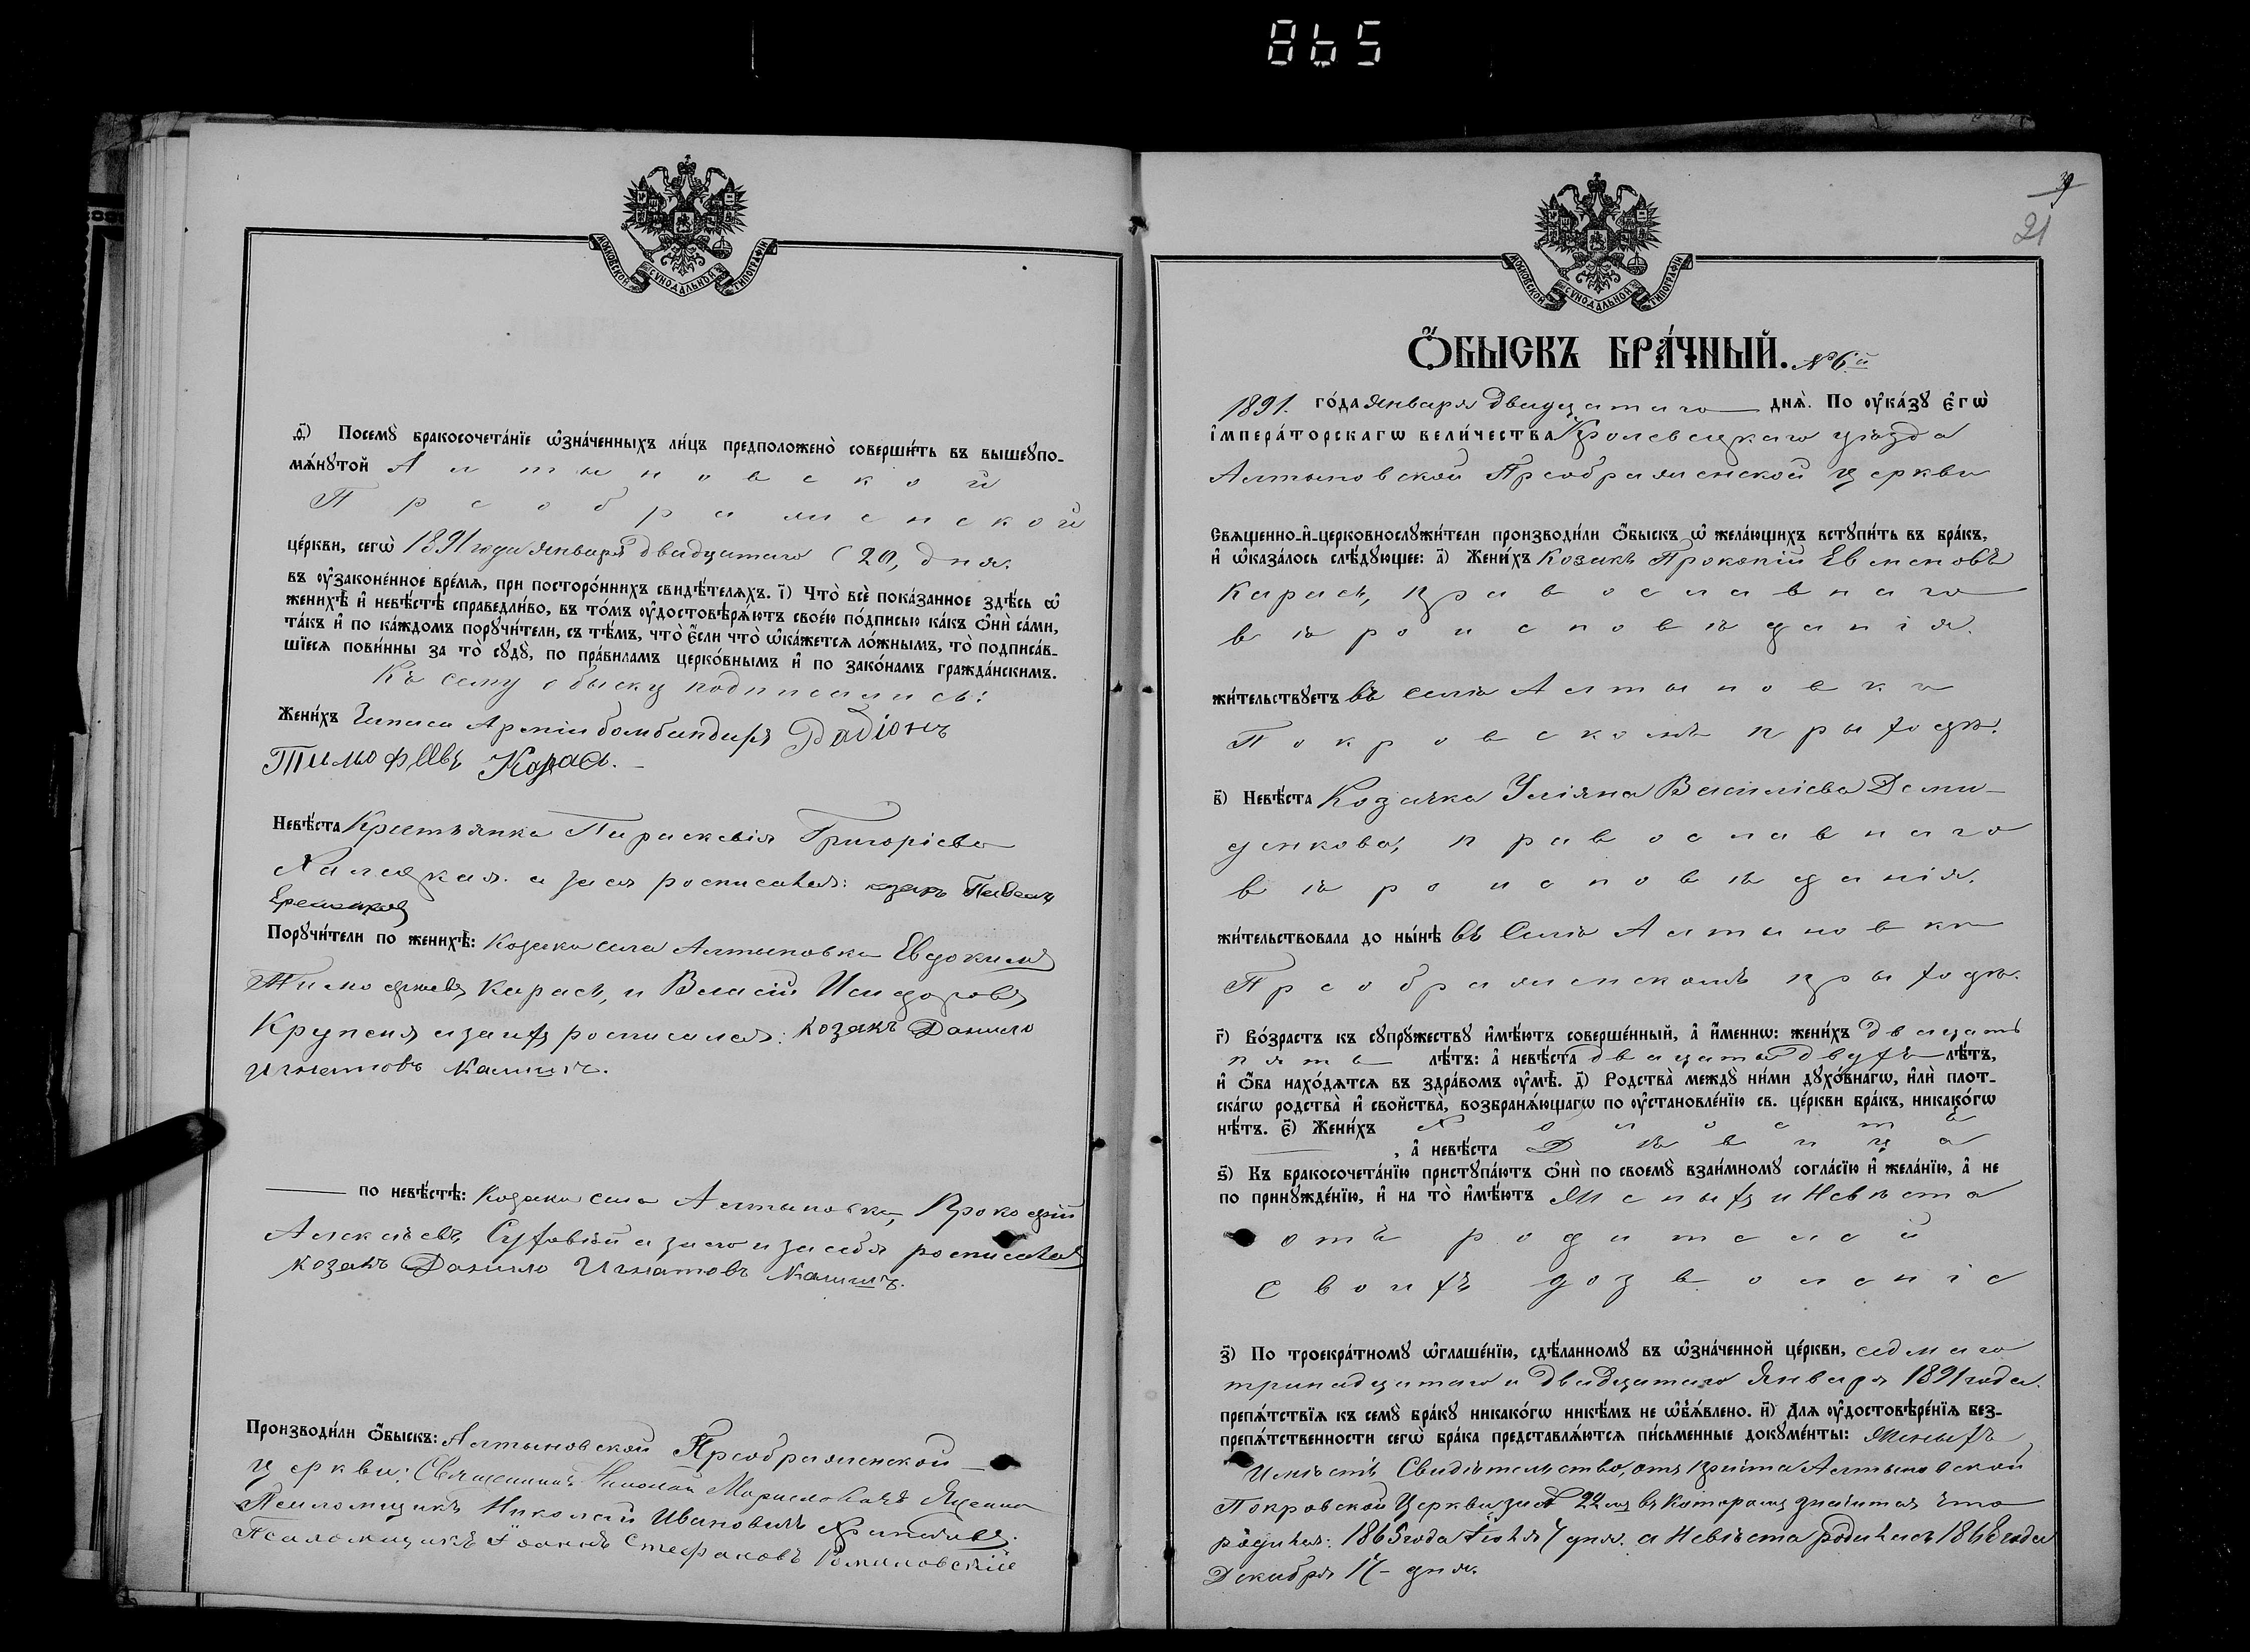 865
МОСКОВСКОЙ СѴНОДАЛЬНОЙ ТИПОГРАФІИ
ѳ҃) Посемꙋ̀ бракосочета́нїе ѡ҆зна́ченныхъ ли́цъ предположено̀ соверши́ть въ вышеꙋпо-
мѧ́нꙋтой Алтыновской
Преображенской
це́ркви, сегѡ̀ 1891 года Января двадцатаго (20, дня.
въ ᲂу҆законе́нное вре́мѧ, при посторо́ннихъ свидѣ́телѧхъ. і҃) Что̀ всѐ пока́занное здѣ́сь ѡ҆
женихѣ̀ и҆ невѣ́стѣ справедли́во, въ то́мъ ᲂу҆достовѣрѧ́ютъ свое́ю по́дписью ка́къ ѻ҆нѝ са́ми,
та́къ и҆ по ка́ждомъ порꙋчи́тели, съ тѣ́мъ, что̀ є҆́сли что̀ ѡ҆ка́жетсѧ ло́жнымъ, то̀ подписа́в-
шїесѧ пови́нны за то̀ сꙋдꙋ̀, по пра́виламъ церко́внымъ и҆ по зако́намъ гражда́нскимъ.
Къ сему обыску подписались:
Жени́хъ Запаса Арміи бомбандиръ Радіонъ
Тимофѣевъ Карась.
Невѣ́ста Крестьянка Параскевія Григоріева
Халецкая. а за ея росписался: козакъ Павелъ
Порꙋчи́тели по женихѣ̀: Козаки села Алтыновки Евдокимъ
Тимофѣевъ Карась, и Власій Исидоровъ
Крупеня а за ихъ росписался: козакъ Данило
Игнатовъ Калишъ.
по невѣ́стѣ: Козаки села Алтыновки, Прокофій
Алексѣевъ Суховій а за его и за себя росписался
козакъ Данило Игнатовъ Калишъ.
Производи́ли ѻ҆́быскъ: Алтыновской Преображенской
церкви: Священникъ Николай Ященко
Псаломщикъ Николай Ивановичъ
Псаломщикъ Іоаннъ Стефановъ Ромаловскій
МОСКОВСКОЙ СѴНОДАЛЬНОЙ ТИПОГРАФІИ
21
Ѻ҆́БЫСКЪ БРА́ЧНЫЙ. № 6й
1891. го́да Января двадцатаго днѧ̀. По ᲂу҆ка́зꙋ є҆гѡ̀
і҆мпера́торскагѡ вели́чества Кролевецкаго уѣзда
Алтыновской Преображенской церкви
Свѧщенно-и҆-церковнослꙋжи́тели производи́ли ѻ҆́быскъ ѡ҆ жела́ющихъ встꙋпи́ть въ бра́къ,
и҆ ѡ҆каза́лось слѣ́дꙋющее: а҃) Жени́хъ Козакъ Прокопій Евменовъ
Карась, православнаго
вѣроисповѣданія.
жи́тельствꙋетъ въ селѣ Алтыновки
Покровскомъ приходѣ.
в҃) Невѣ́ста Козачка Уліяна Василіева Деми-
денкова, православнаго
вѣроисповѣданія.
жи́тельствовала до ны́нѣ въ селѣ Алтыновки
Преображенскомъ приходѣ.
г҃) Во́зрастъ къ сꙋпрꙋ́жествꙋ и҆мѣ́ютъ соверше́нный, а҆ и҆́меннѡ: жени́хъ двадцать
пять лѣ́тъ: а҆ невѣ́ста двадцати двухъ лѣ́тъ,
и҆ ѻ҆́ба нахо́дѧтсѧ въ здра́вомъ ᲂу҆мѣ̀. д҃) Родства̀ междꙋ̀ ни́ми дꙋхо́внагѡ, и҆лѝ плот-
ска́гѡ родства̀ и҆ сво́йства̀, возбранѧ́ющагѡ по ᲂу҆становле́нїю св. це́ркви бра́къ, никако́гѡ
нѣ́тъ. є҃) Жени́хъ Холостъ
, а҆ невѣ́ста Дѣвица
ѕ҃) Къ бракосочета́нїю пристꙋпа́ютъ ѻ҆нѝ по своемꙋ̀ взаи́мномꙋ согла́сїю и҆ жела́нїю, а҆ не
по принꙋжде́нїю, и҆ на то̀ и҆мѣ́ютъ Женихъ и Невѣста
отъ родителей
своихъ дозволеніе
з҃) По троекра́тномꙋ ѡ҆глаше́нїю, сдѣ́ланномꙋ въ ѡ҆зна́ченной це́ркви, седмаго
тринадцатаго и двадцатаго Января 1891 года.
препѧ́тствїѧ къ семꙋ̀ бра́кꙋ никако́гѡ никѣ́мъ не ѡ҆б̾ѧ́влено. и҃) Длѧ ᲂу҆достовѣре́нїѧ без-
препѧ́тственности сегѡ̀ бра́ка представлѧ́ютсѧ пи́сьменные докꙋме́нты: Женихъ
Имѣетъ Свидѣтельство, отъ причта Алтыновской
Покровской Церкви за № 22мъ въ которомъ значится что
родился: 1865 года Іюля 7 дня. а Невѣста родилась 1868 года
Декабря 17- дня.